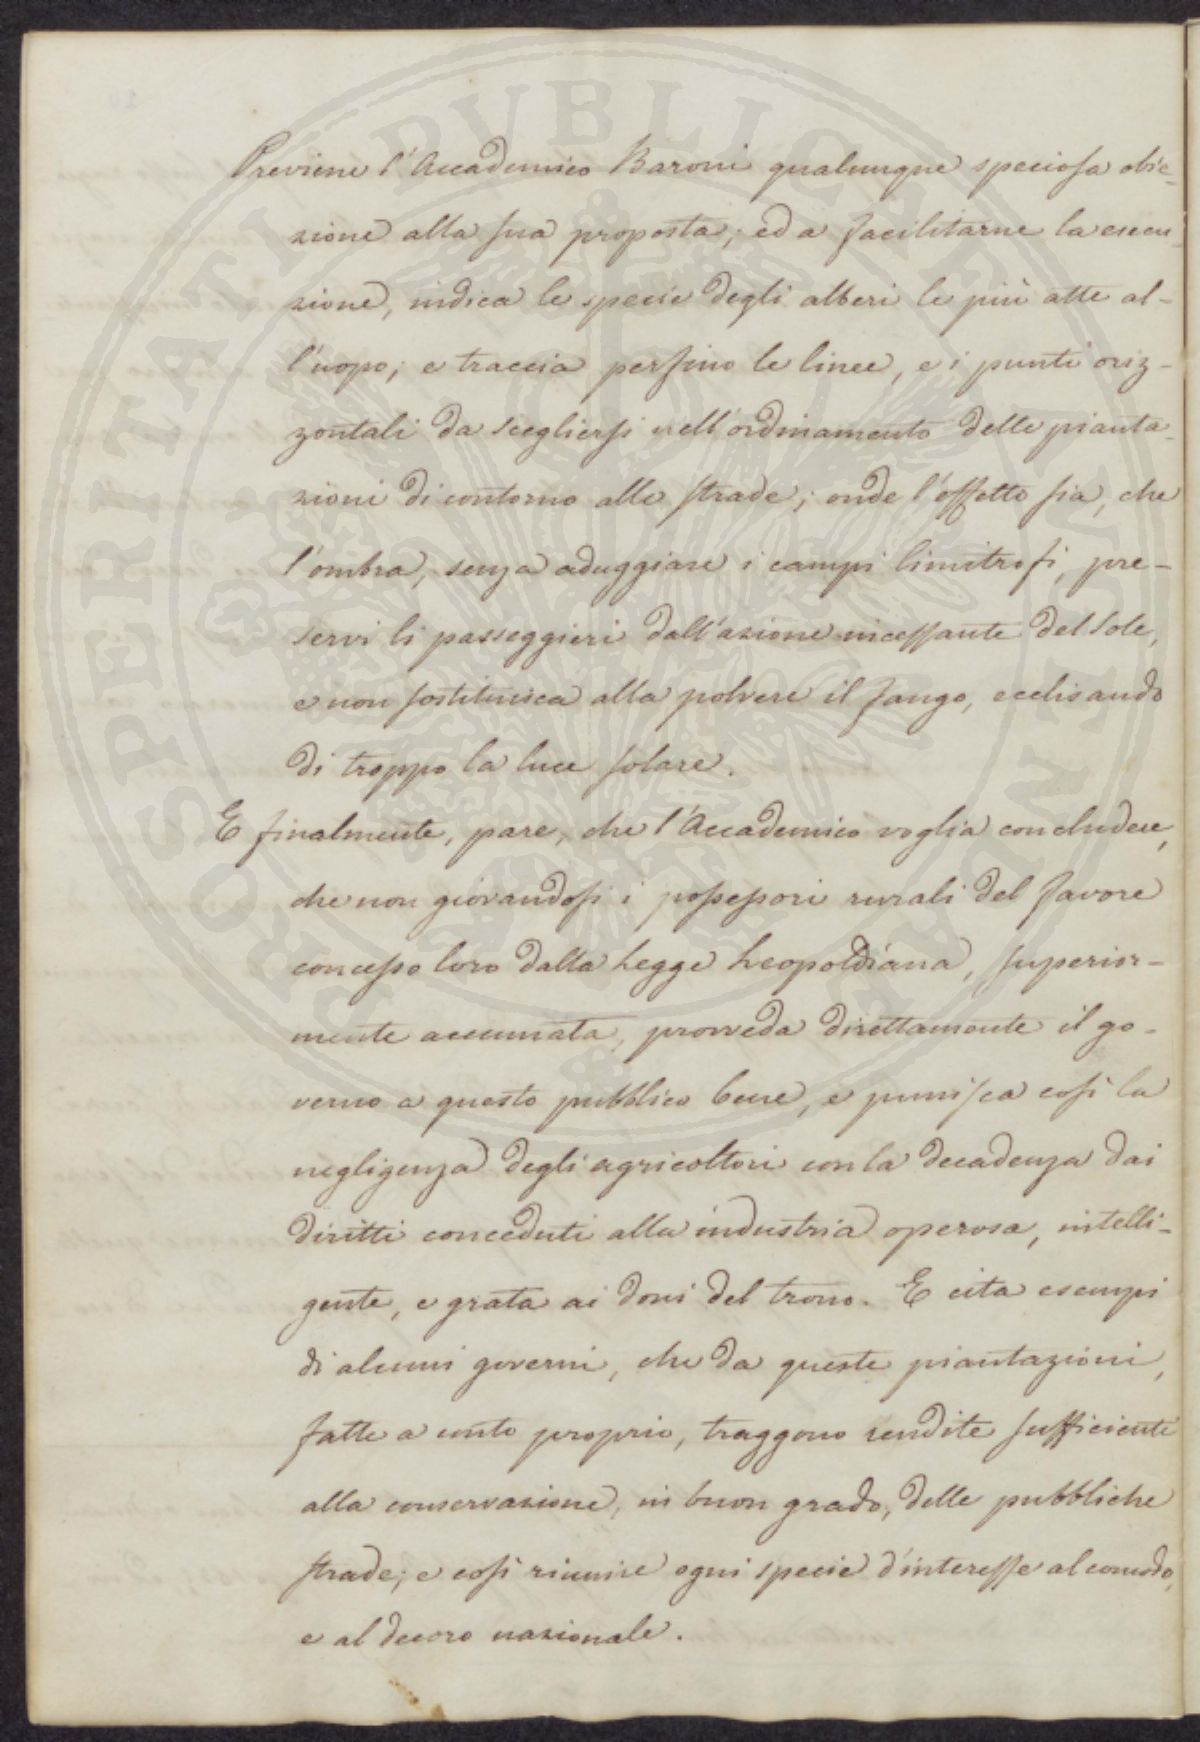 Previene l'Accademico Baroni qualunque speciosa obie-
zione alla sua proposta; ed a facilitarne la esecu-
zione, indica le specie degli alberi le più atte al-
l'uopo; e traccia perfino le linee, e i punti oriz-
zontali da scegliersi nell'ordinamento delle pianta-
zioni di contorno alle strade; onde l'effetto sia, che
l'ombra, senza aduggiare i campi limitrofi, pre-
servi li passeggieri dall'azione incessante del sole,
e non sostituisca alla polvere il fango, ecclisando
di troppo la luce solare.
E finalmente, pare, che l'Accademico voglia concludere,
che non giovandosi i possessori rurali del favore
concesso loro dalla Legge Leopoldiana, superior-
mente accennata, provveda direttamente il go-
verno a questo pubblico bene, e punisca così la
negligenza degli agricoltori con la decadenza dai
diritti conceduti alla industria operosa, intelli-
gente, e grata ai doni del trono. E cita esempi
di alcuni governi, che da queste piantazioni,
fatte a conto proprio, traggono rendite sufficiente
alla conservazione, in buon grado, delle pubbliche
strade; e così riunire ogni specie d'interesse al comodo,
e al decoro nazionale.
PROSPERITATI PUBLICAE